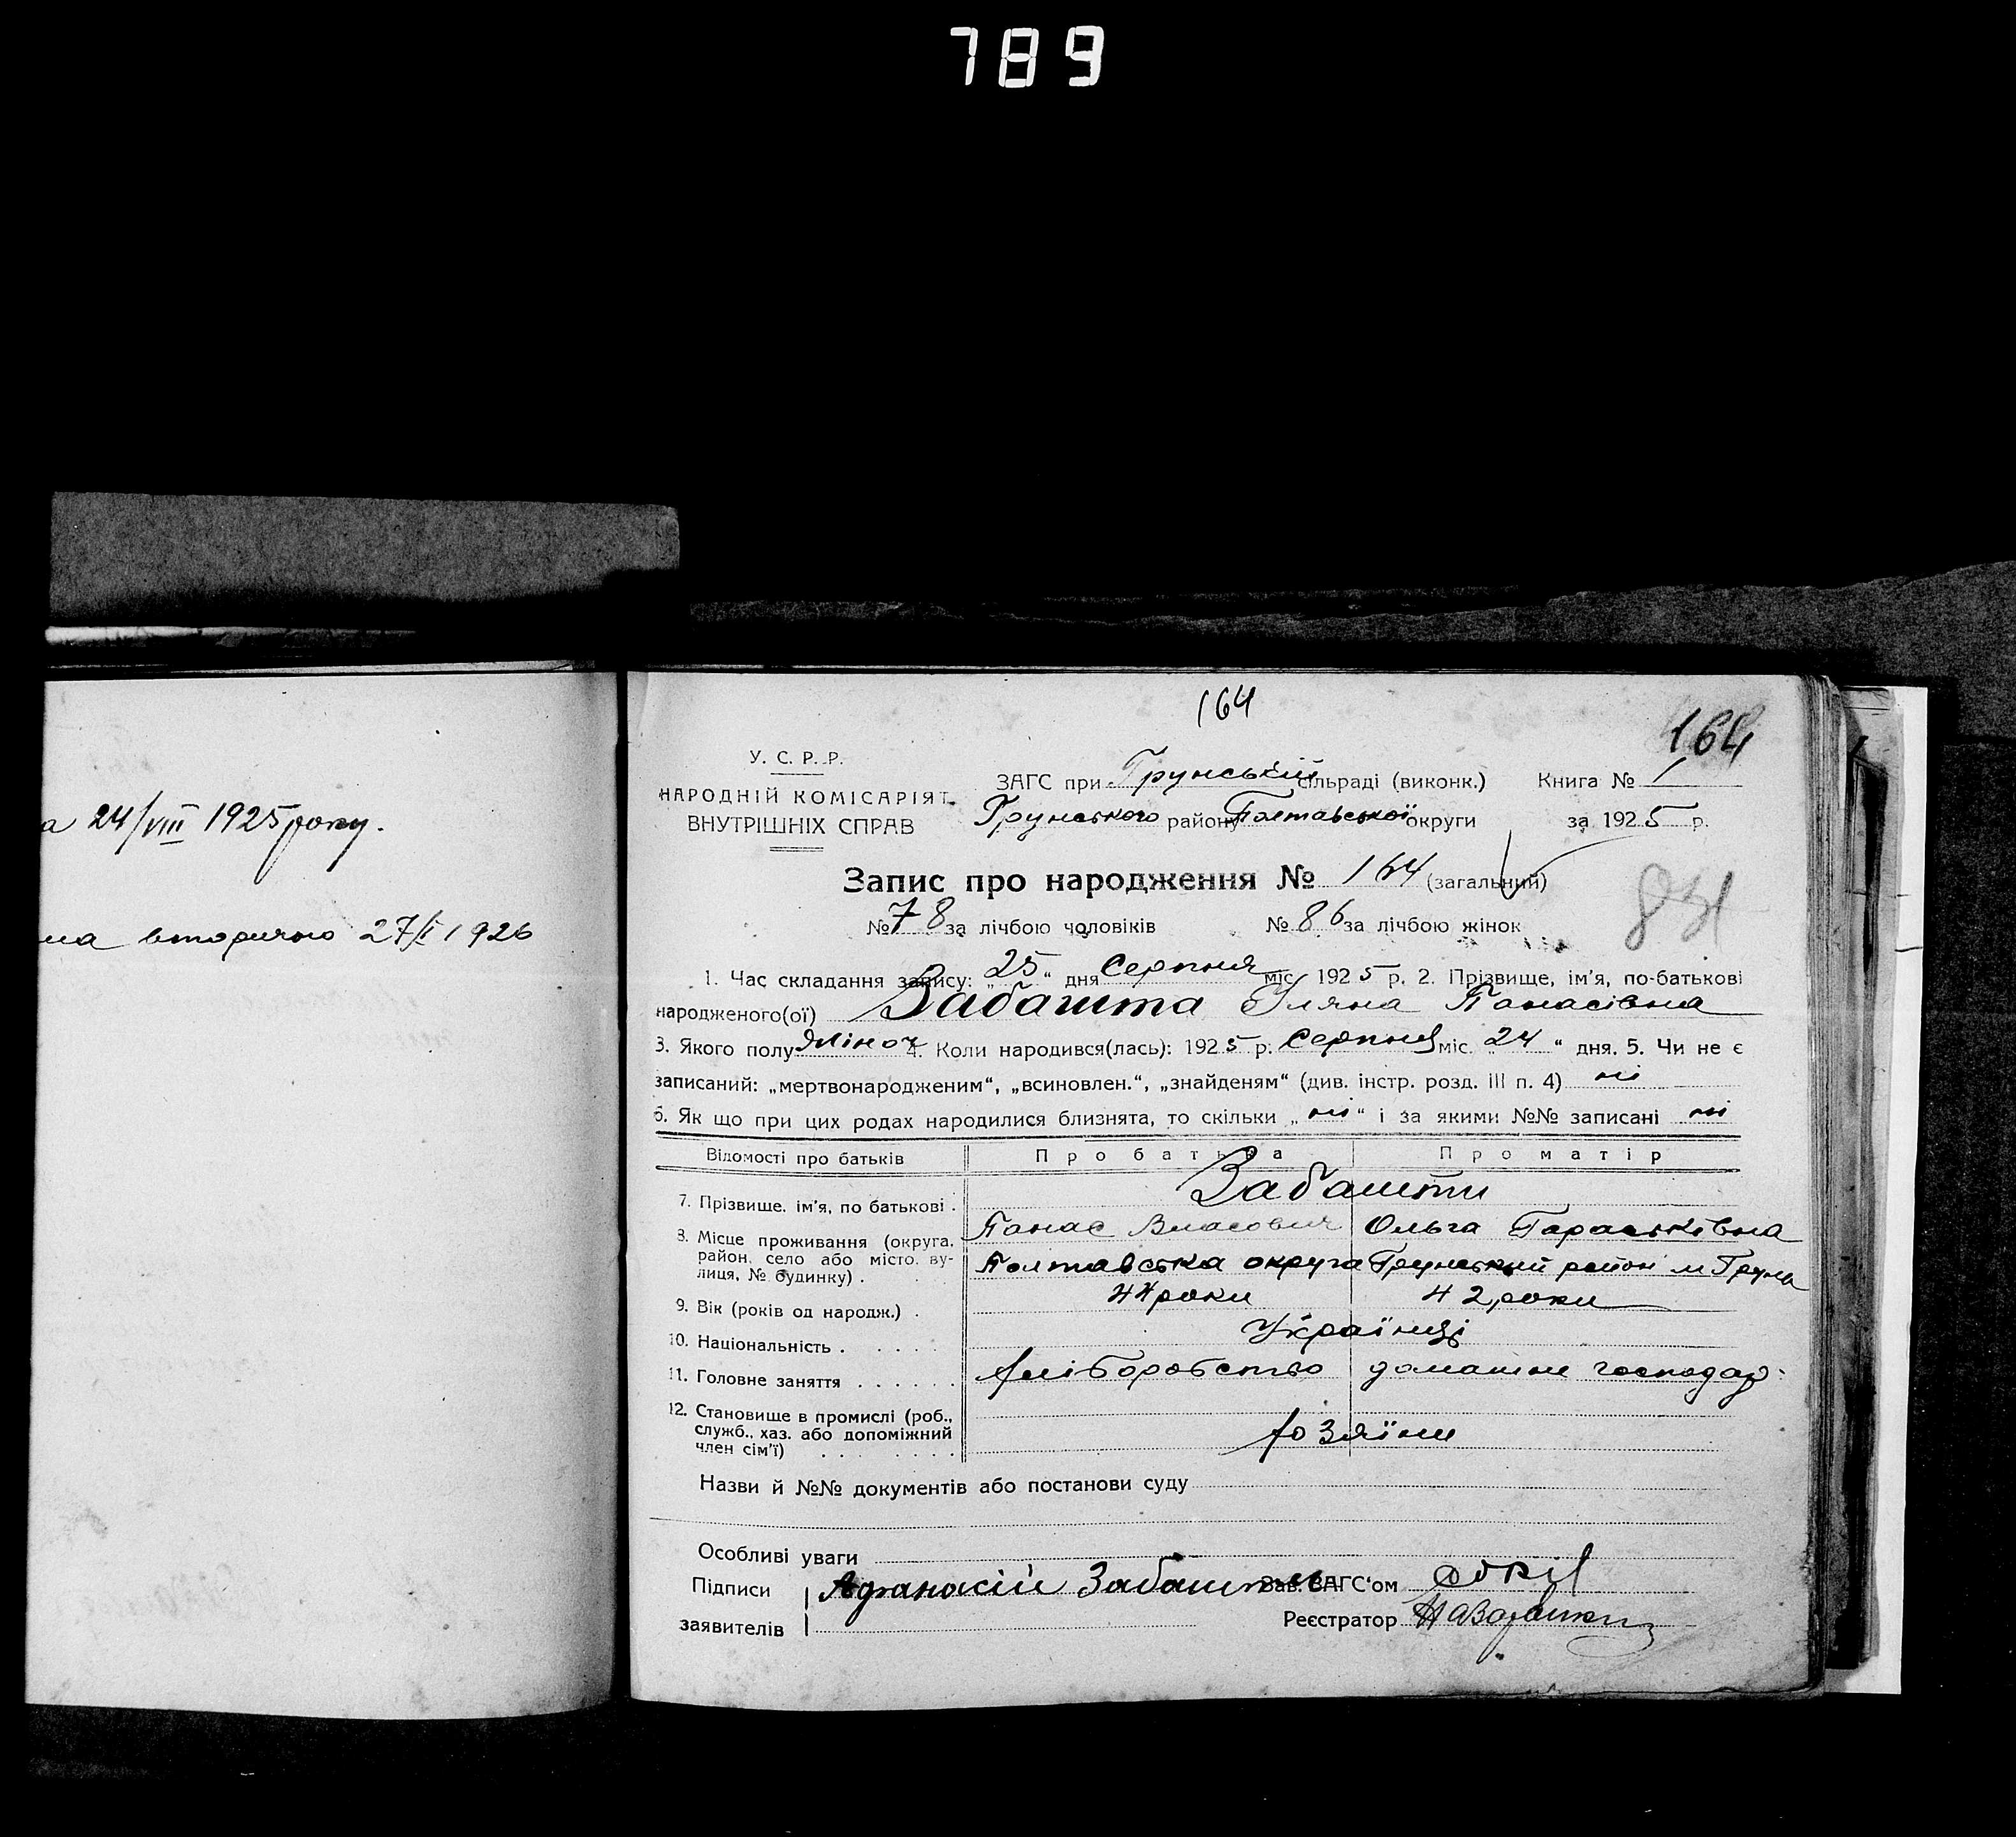 789
а 24/VIII 1925 року.
на вторично 27/I 1926
164
164
У. С. Р. Р.
НАРОДНІЙ КОМІСАРІЯТ
ВНУТРІШНІХ СПРАВ
ЗАГС при Грунській сільраді (виконк.) Книга № 1
Грунського району Полтавської округи за 1925 р.
Запис про народження № 164 (загальний)
№ 78 за лічбою чоловіків № 86 за лічбою жінок
1. Час складання запису: „25“ дня Серпня міс. 1925 р. 2. Прізвище, ім’я, по-батькові
народженого(ої) Забашта Уляна Панасівна
3. Якого полу жіноч 4. Коли народився(лась): 1925 р. Серпня міс. „24“ дня. 5. Чи не є
записаний: „мертвонародженим“, „всиновлен.“, „знайденям“ (див. інстр. розд. III п. 4) ні
6. Як що при цих родах народилися близнята, то скільки „ні“ і за якими №№ записані ні
Відомості про батьків Про батька Про матір
7. Прізвище, ім’я, по батькові . Забашти
Панас Власович Ольга Гараськівна
8. Місце проживання (округа, район, село або місто, ву-
лиця, № будинку) . Полтавська округа Грунський район м Грунь
9. Вік (років од народж.) . 44 роки 42 роки
10. Національність . . . . . Українці
11. Головне заняття . . . . . . хліборобство домашнє господар.
12. Становище в промислі (роб.,
служб., хаз. або допоміжний
член сім’ї) . . . . . . . хозяїни
Назви й №№ документів або постанови суду
Особливі уваги
Підписи Афанасій Забашта Зав. ЗАГС‘ом
заявителів Реєстратор